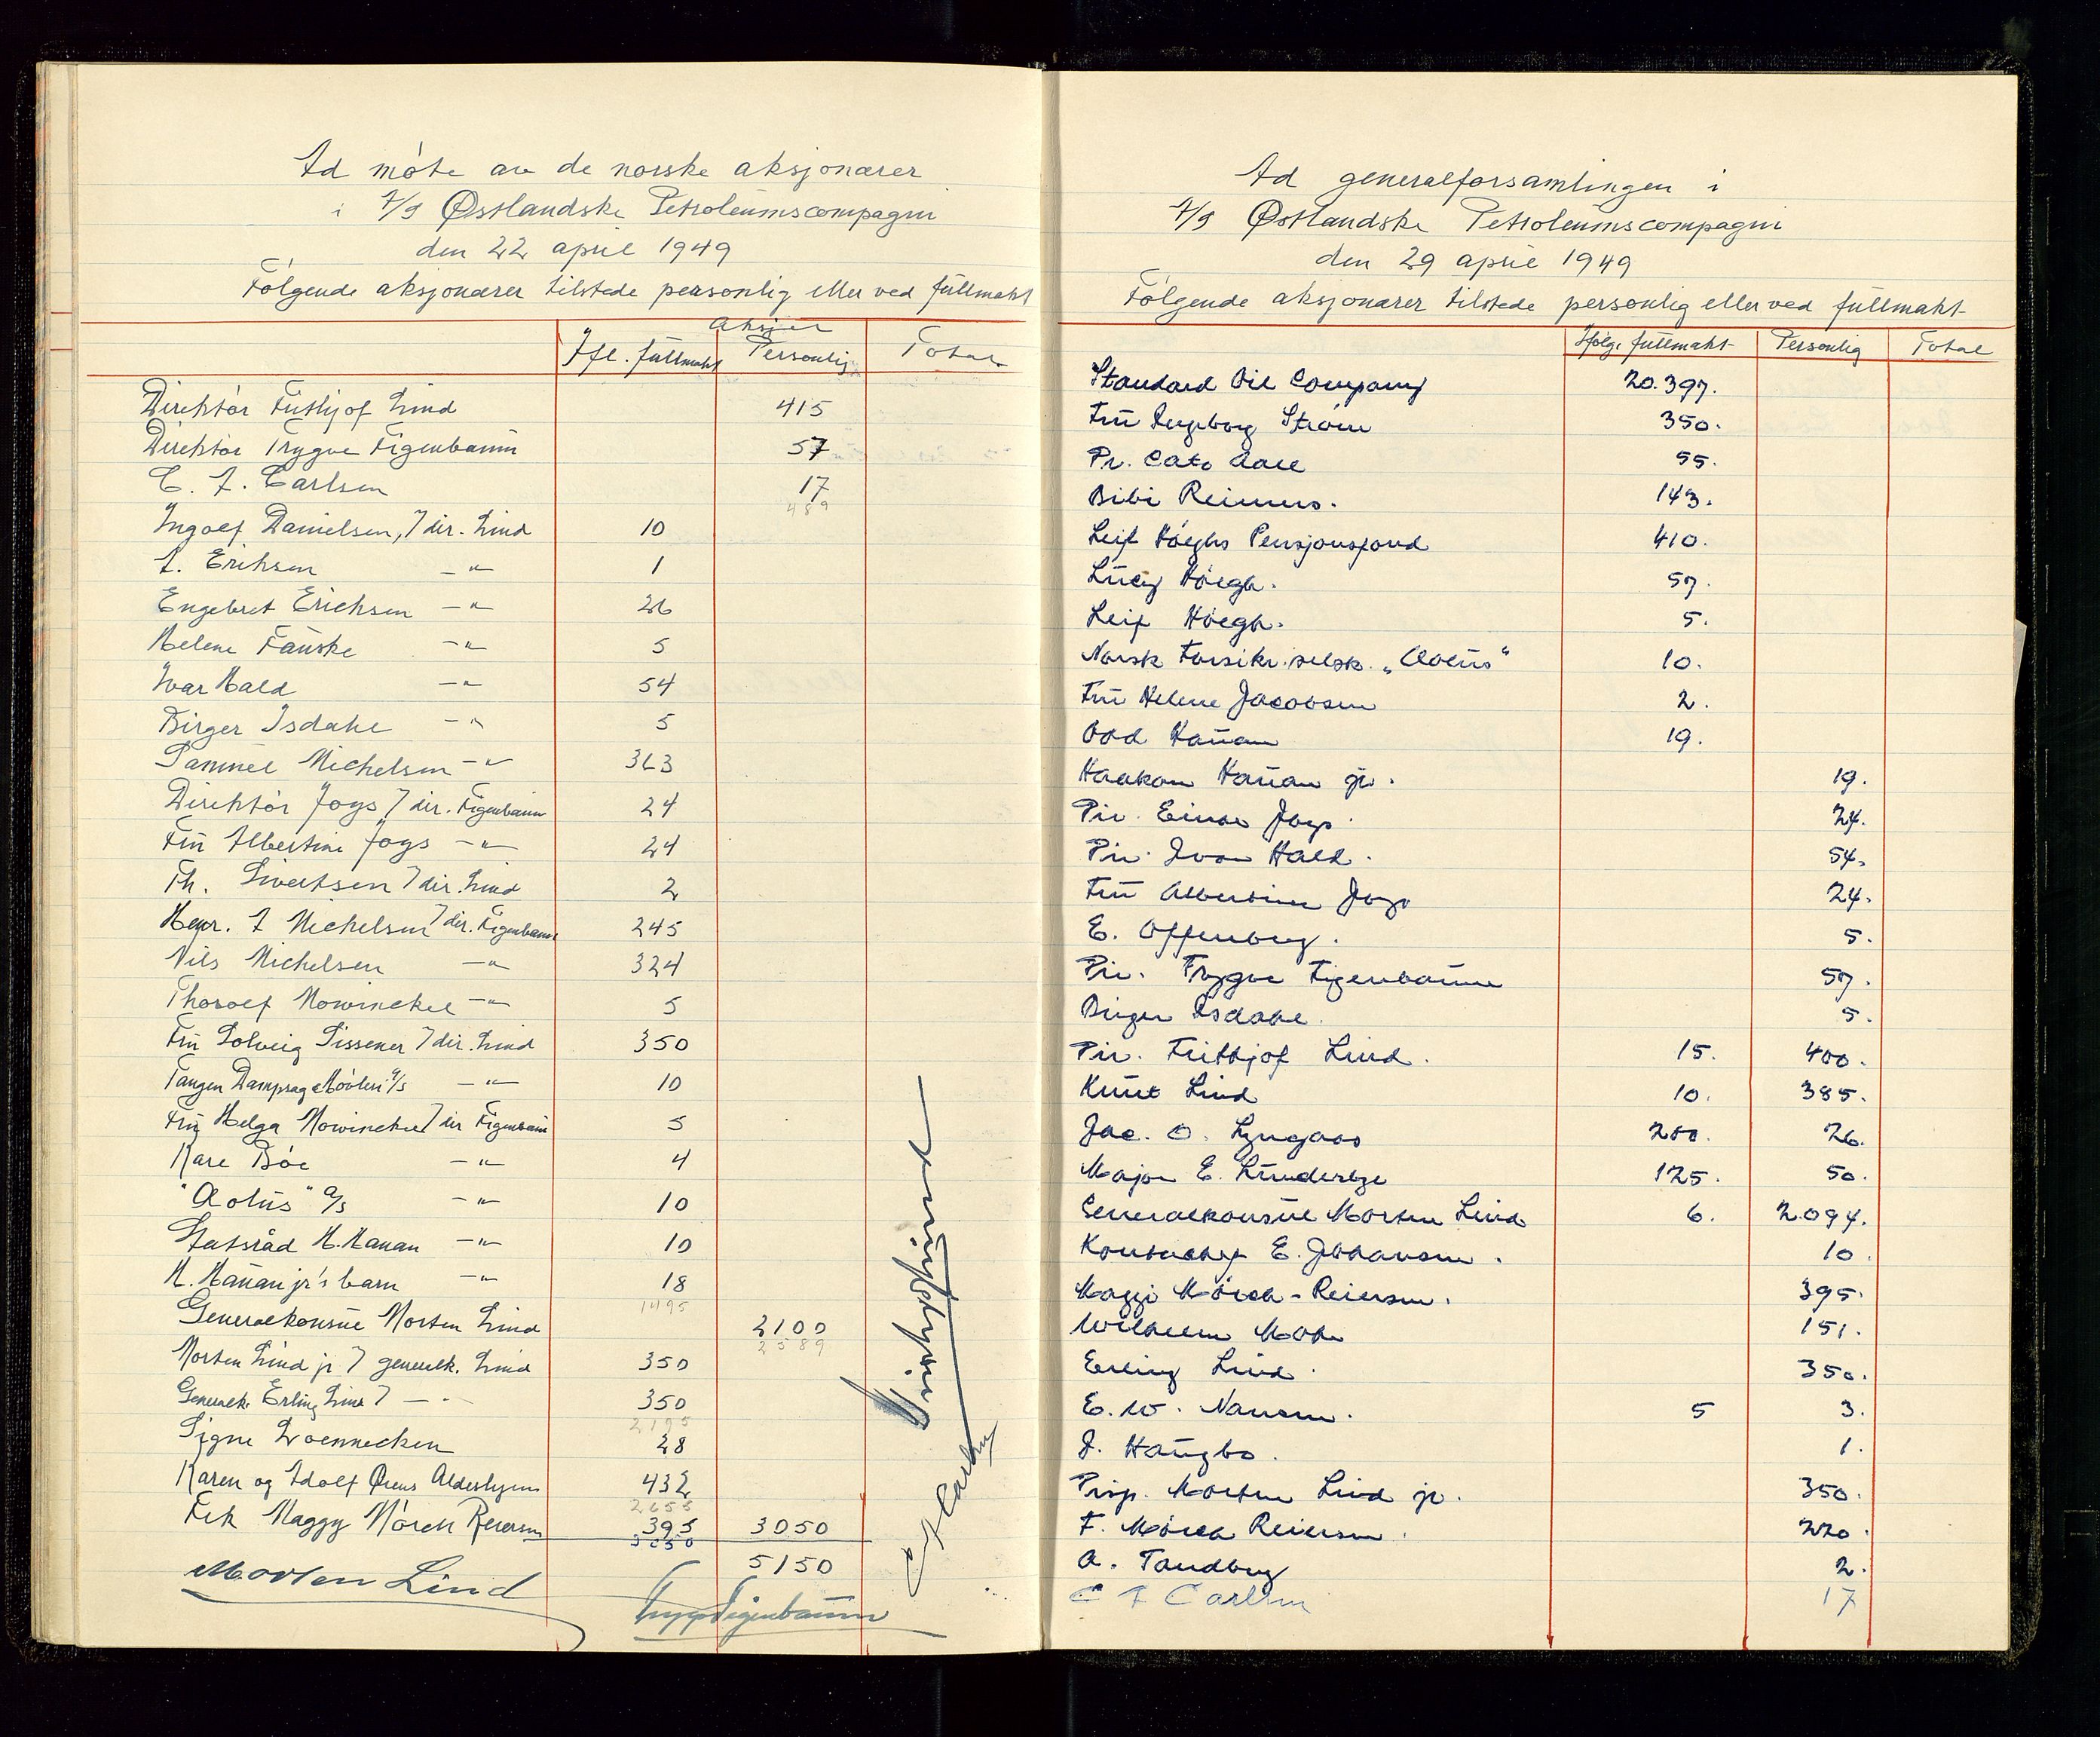 Ad møte av de norske aksjonærer
i A/S Østlandske Petroleumscompagni
den 22 april 1949
Følgende aksjonærer tilstede personlig eller ved fullmakt
Aksjer
Ifl. fullmakt Personlig Total
Direktør Frithjof Lind 415
Direktør Trygve Figenbaum 57
C. F. Carlsen 17
489
Ingolf Danielsen, / dir. Lind 10
A. Eriksen —"— 1
Engebret Erichsen —"— 26
Helene Fauske —"— 5
Ivar Hald —"— 54
Birger Isdahl —"— 5
Samuel Michelsen —"— 363
Direktør Joys / dir. Figenbaum 24
Fru Albertine Joys —"— 24
Th. Sivertsen / dir. Lind 2
Henr. F Michelsen / dir. Figenbaum 245
Nils Michelsen —"— 324
Thorolf Mowinckel —"— 5
Fru Solveig Sissener / dir. Lind 350
Tangen Dampsag & Høvleri A/S —"— 10
Fru Helga Mowinckel / dir Figenbaum 5
Kåre Bøe —"— 4
"Æolus" A/S —"— 10
Statsråd H. Hauan —"— 10
H. Hauan jr's barn —"— 18
1495
Generalkonsul Morten Lind 2100
2589
Morten Lind jr / generalk. Lind 350
Generalk. Erling Lind / —"— 350
2195
Signe Loennecken 28
Karen og Adolf Øiens Aldershjem 432
2655
Frk Maggy Mörch Reiersen 395 3050
3050
5150
Morten Lind
Trygve Figenbaum
Frithjof Lind
C F Carlsen
Ad generalforsamlingen i
A/S Østlandske Petroleumscompagni
den 29 april 1949
Følgende aksjonærer tilstede personlig eller ved fullmakt
Ifølge fullmakt Personlig Total
Standard Oil Company 20.397.
Fru Ingeborg Strøm 350.
Dr. Cato Aall 55.
Bibi Reimers. 143.
Leif Höeghs Pensjonsfond 410.
Lucy Höegh. 57.
Leif Höegh. 5.
Norsk Forsikr. selsk. "Æolus" 10.
Fru Helene Jacobsen 2.
Odd Hauan 19.
Haakon Hauan jr. 19.
Dir. Einar Joys. 24.
Dir. Ivar Hald. 54.
Fru Albertine Joys 24.
E. Offenberg. 5.
Dir. Trygve Figenbaum 57.
Birger Isdahl. 5.
Dir. Frithjof Lind. 15. 400.
Knut Lind 10. 385.
Jac. O. Lyngaas 200. 26.
Major E. 125. 50.
Generalkonsul Morten Lind 6. 2.094.
Kontorchef E. Johansen. 10.
Maggi Mörch-Reiersen. 395.
Wilhelm 151.
Erling Lind. 350.
E. W. Nansen. 5 3.
J. Haugbo. 1.
Disp. Morten Lind jr. 350.
F. Mörch Reiersen. 220.
A. Tandberg 2.
C F Carlsen 17